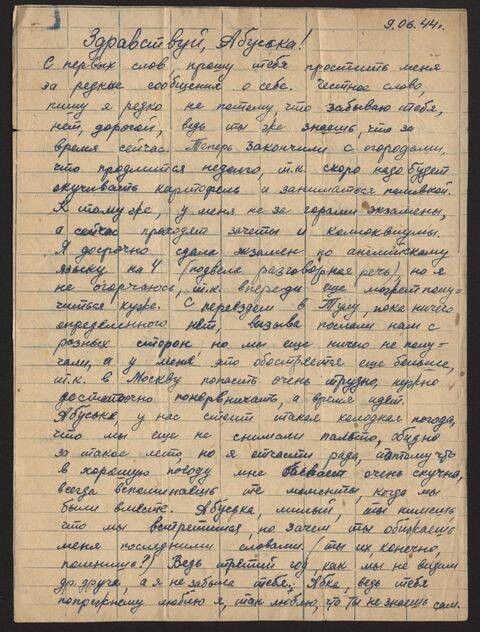 9.06.44г.
Здравствуй, Абуська!
С первых слов прошу тебя простить меня
за редкие сообщения о себе. Честное слово,
пишу я редко не потому, что забываю тебя,
нет, дорогой, ведь ты же знаешь, что за
время сейчас. Теперь закончили с огородами,
что продлится недолго, т.к. скоро надо будет
окучивать картофель и заниматься поливкой.
К тому же, у меня не за горами экзамены,
а сейчас проходят зачеты и коллоквиумы.
Я досрочно сдала экзамен по английскому
языку на 4 (подвела разговорная речь), но я
не огорчаюсь, т.к. впереди еще может полу-
читься хуже. С переездом в Тулу, пока ничего
определенного нет, вызыва послали нам с
разных сторон но мы еще ничего не полу-
чали, а у меня это обостряется еще больше,
т.к. в Москву попасть очень трудно, нужно
достаточно понервничать, а время идет.
Абуська, у нас стоит такая холодная погода,
что мы еще не снимали пальто, обидно
за такое лето, но я отчасти рада, потому что
в хорошую погоду мне бывает очень скучно,
всегда вспоминаешь те моменты, когда мы
были вместе. Абуська, милый, ты пишешь,
что мы встретимся, но зачем ты обижаешь
меня последними словами (ты их, конечно,
помнишь?) Ведь третий год, как мы не видим
др. друга, а я не забыла тебя, Абка, ведь тебя
попрежнему люблю я, так люблю, что ты не знаешь сам.